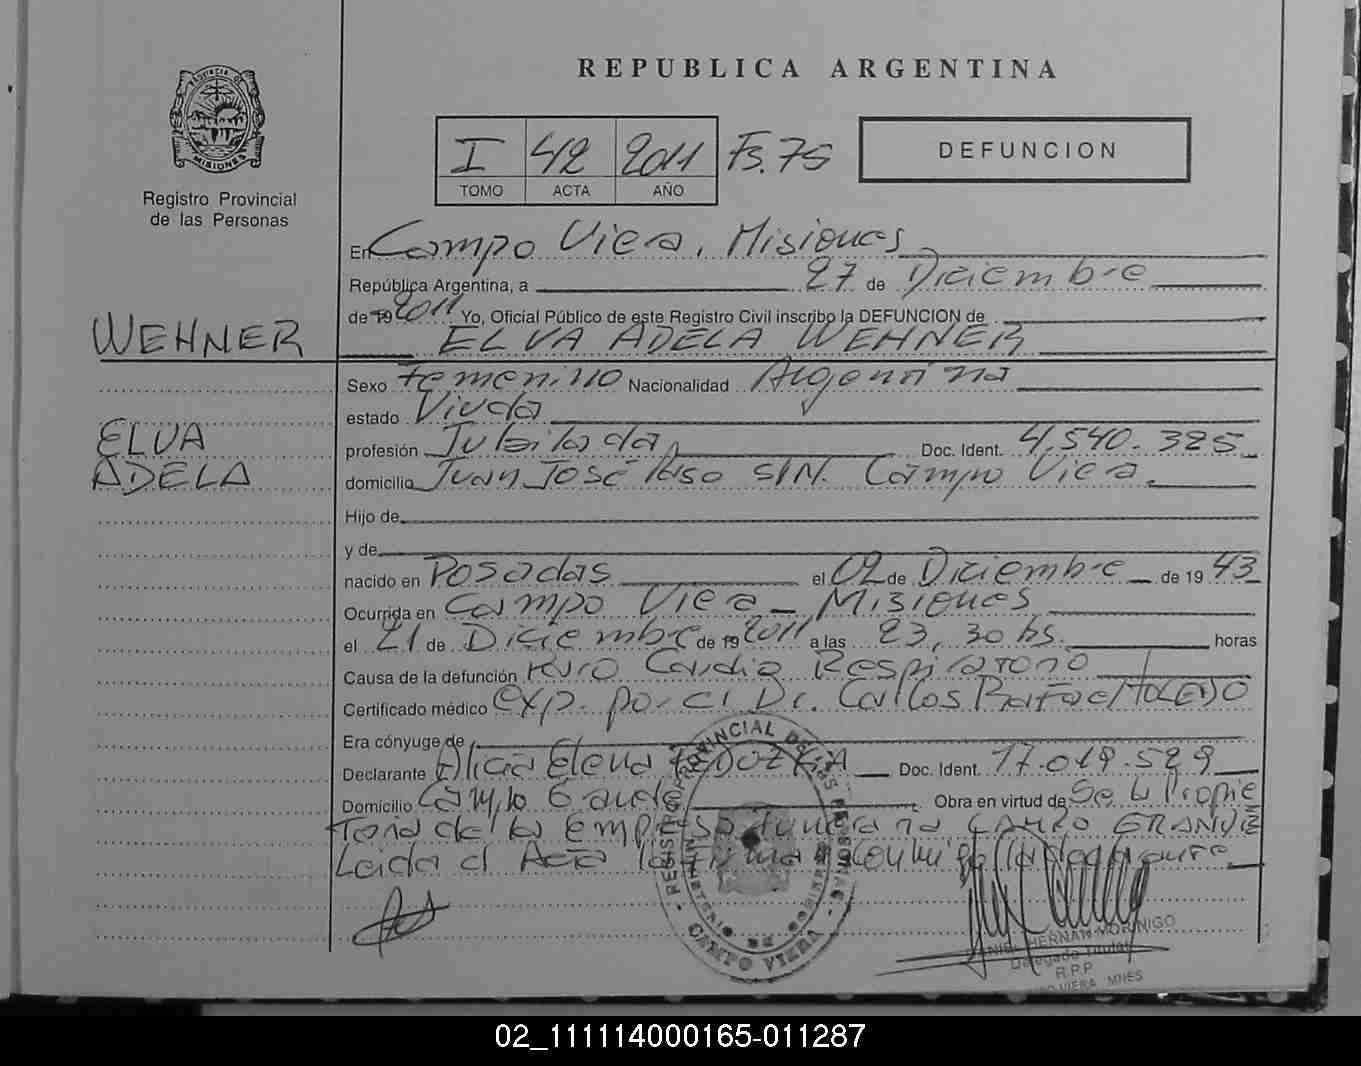 REPUBLICA ARGENTINA
PROVINCIA DE
MISIONES
Registro Provincial
de las Personas
I 42 2011 Fs. 75
TOMO ACTA AÑO
DEFUNCION
En Campo Viera, Misiones
República Argentina, a 27 de Diciembre
de 19 2011 Yo, Oficial Público de este Registro Civil inscribo la DEFUNCION de
WEHNER
ELVA ADELA WEHNER
Sexo Femenino Nacionalidad Argentina
estado Viuda
ELVA
profesión Jubilada Doc. Ident. 4.540.325
ADELA
domicilio Juan José Paso S/N. Campo Viera.
Hijo de
y de
nacido en Posadas el 02 de Diciembre de 19 43
Ocurrida en Campo Viera - Misiones
el 21 de Diciembre de 19 2011 a las 23,30 hs. horas
Causa de la defunción Paro Cardio Respiratorio
Certificado médico exp. por el Dr. Carlos Rafael TOLEDO
Era cónyuge de
Declarante Alicia Elena Doc. Ident. 17.019.529
Domicilio Campo Grande Obra en virtud de Se la Propie
taria de la empresa funeraria CAMPO GRANDE
Leida el Acta la firma conmigo la declarante
REGISTRO PROVINCIAL DE LAS PERSONAS
MINISTERIO DE GOBIERNO
CAMPO VIERA
HERNAN MORINIGO
Delegado Titular
R.P.P.
VIERA MNES
02_111114000165-011287